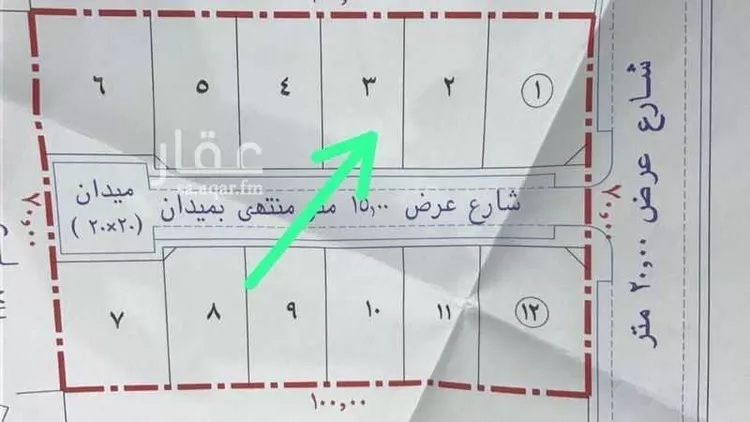 ٦ ٥ ٤ ٣ ٢ ١
عقار
sa.aqar.fm
ميدان
(٢٠×٢٠)
شارع عرض ١٥,٠٠ متر منتهى بميدان
٧ ٨ ٩ ١٠ ١١ ١٢
٧٠,٠٠
٧٠,٠٠
١٠٠,٠٠
شارع عرض ٢٠,٠٠ متر